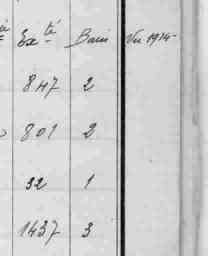 Exté Bain Vu 1914
847 2
801 2
32 1
1437 3